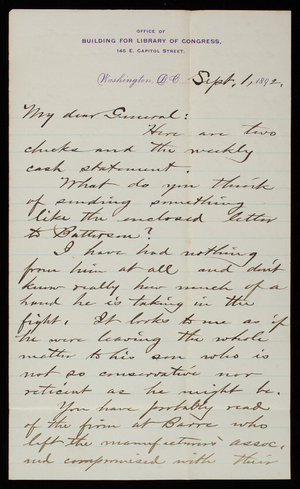 OFFICE OF
BUILDING FOR LIBRARY OF CONGRESS,
145 E. CAPITOL STREET.
Washington, D.C. Sept. 1, 1892.
My dear General:
Here are two
checks and the weekly
cash statement.
What do you think
of sending something
like the enclosed letter
to Batterson?
I have had nothing
from him at all and don't
know really how much of a
hand he is taking in the
fight. It looks to me as if
he were leaving the whole
matter to his son who is
not so conservative nor
reticent as he might be.
You have probably read
of the firm at Barre who
left the manufacturers assoc.
and compromised with their